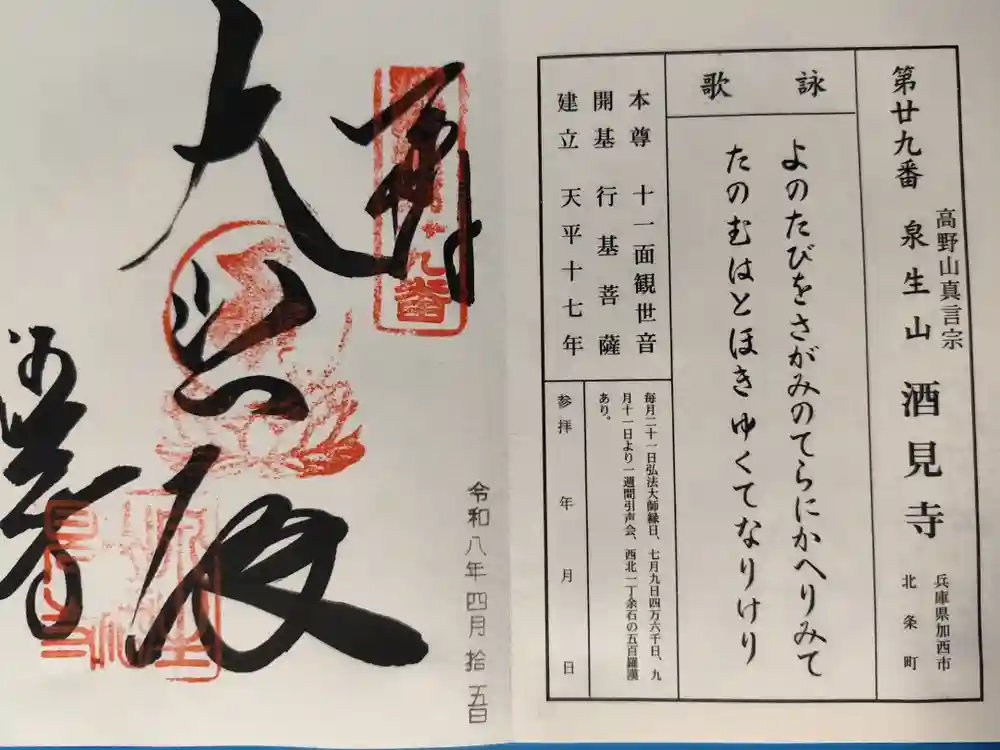 第廿九番 泉生山 酒見寺
高野山真言宗
兵庫県加西市
北条町
詠歌
よのたびをさがみのてらにかへりみて
たのむはとほきゆくてなりけり
本尊 十一面観世音
開基 行基菩薩
建立 天平十七年
毎月二十一日弘法大師縁日、七月九日四万六千日、九
月十一日より一週間引声会、西北一丁余石の五百羅漢
あり。
参拝 年 月 日
奉拝
大悲殿
酒見寺
令和八年四月拾五日